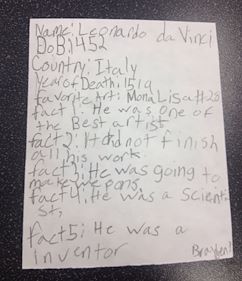 Name: Leonardo da Vinci
DoB: 1452
Country: Italy
Year of Death: 1519
favorite Art: Mona Lisa
fact 1: He was one of
the Best artist.
fact 2: He did not finish
all his work.
fact 3: He was going to
make weapons.
fact 4: He was a scient
st,
fact 5: He was a
inventor